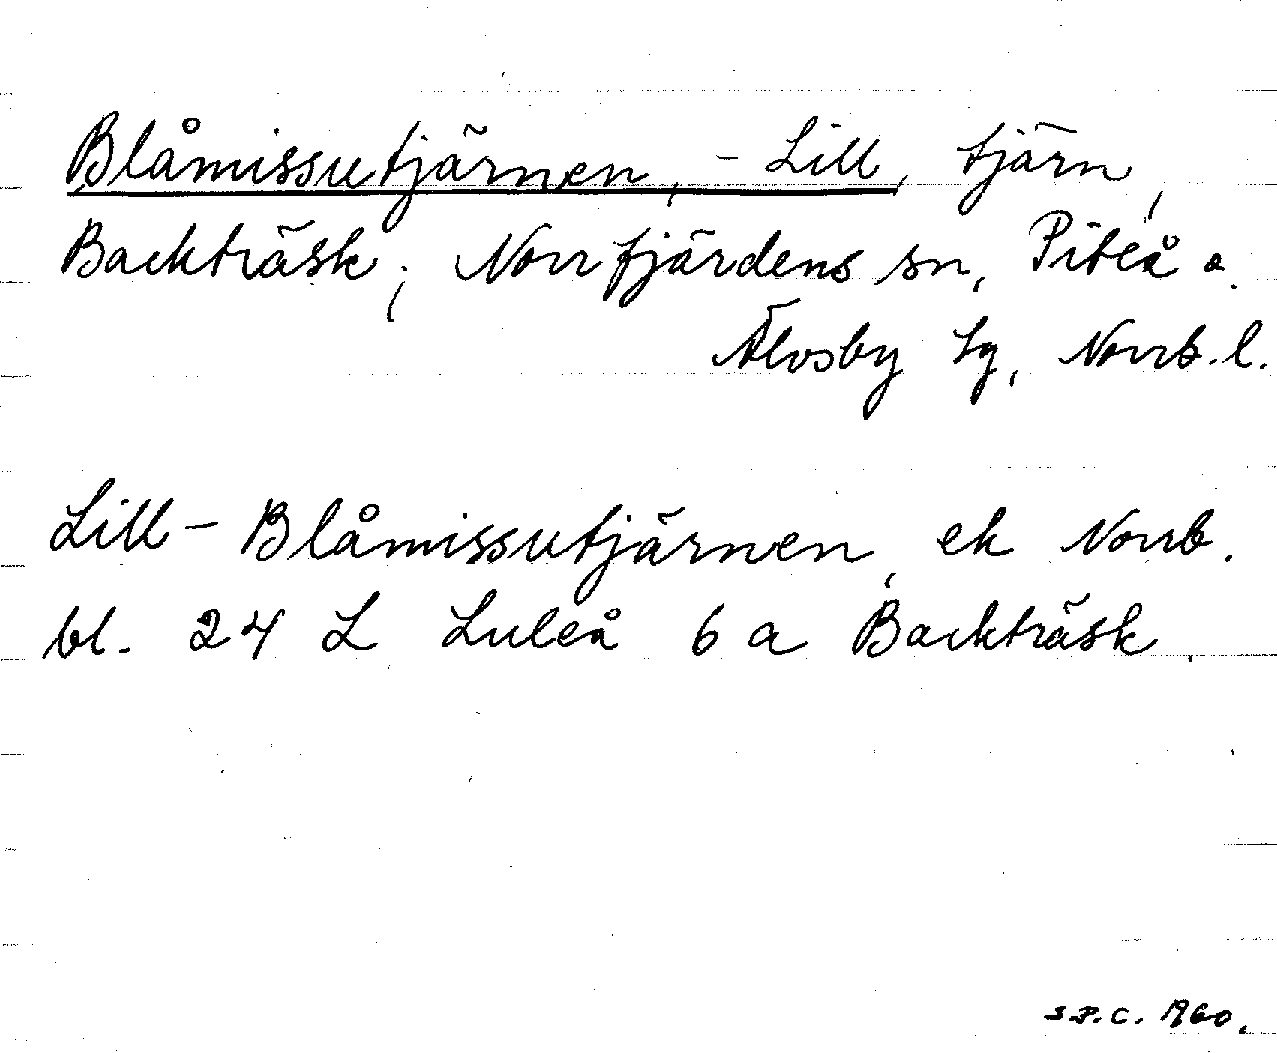 Blåmissutjärnen, - Lill, tjärn,
Backträsk, Norrfjärdens sn, Piteå o.
Älvsby tg, Norrb. l.
Lill-Blåmissutjärnen, ek Norrb.
bl. 24 L Luleå 6 a Backträsk.
S.P.C. 1960.